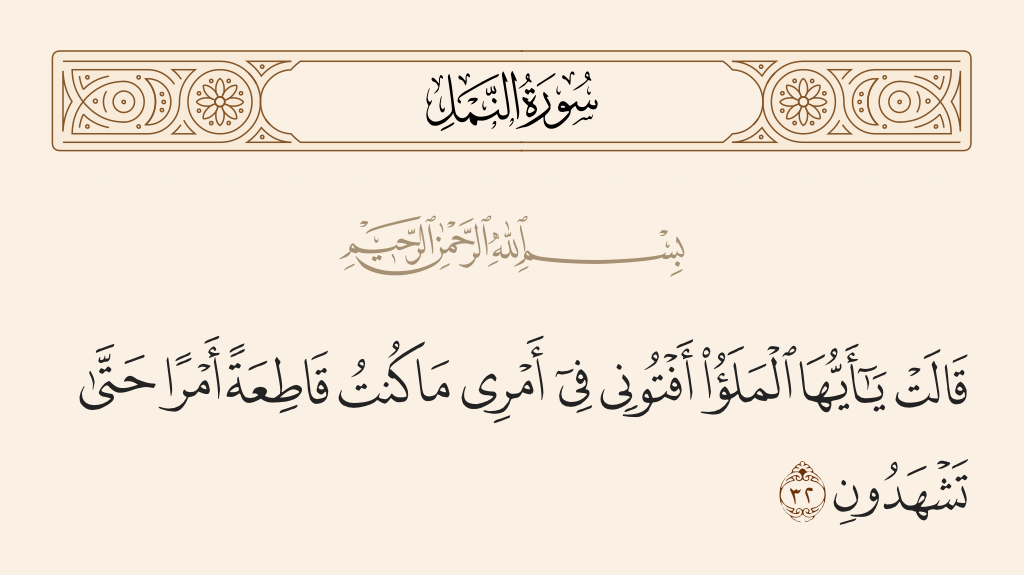 سُورَةُ النَّمْلِ
بِسْمِ ٱللَّهِ ٱلرَّحْمَٰنِ ٱلرَّحِيمِ
قَالَتْ يَـٰٓأَيُّهَا ٱلْمَلَؤُا۟ أَفْتُونِى فِىٓ أَمْرِى مَا كُنتُ قَاطِعَةً أَمْرًا حَتَّىٰ
تَشْهَدُونِ ٣٢